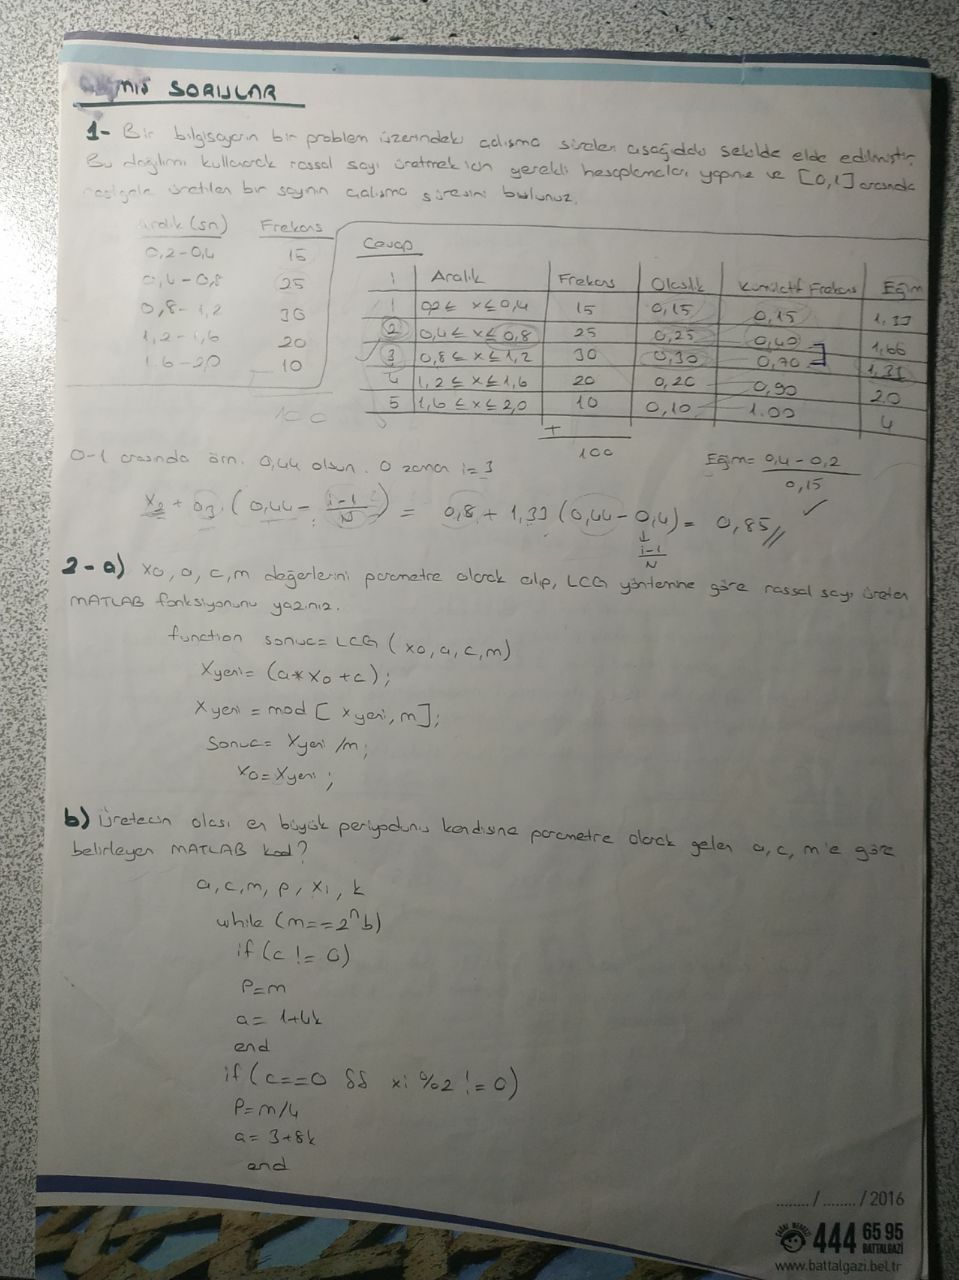 SORULAR
1- Bir bilgisayarın bir problem üzerindeki çalışma süreleri aşağıdaki şekilde elde edilmiştir.
Bu dağılımı kullanarak rassal sayı üretmek için gerekli hesaplamaları yapınız ve [0,1] arasında
rastgele üretilen bir sayının çalışma süresini bulunuz.
Aralık (sn) Frekans
0,2-0,4 15
0,4-0,8 25
0,8-1,2 30
1,2-1,6 20
1.6-2,0 10
100
Cevap
i Aralık Frekans Olasılık Kümülatif Frekans Eğim
1 0,2 ≤ x ≤ 0,4 15 0,15 0,15 1,33
2 0,4 ≤ x ≤ 0,8 25 0,25 0,40 1,66
3 0,8 ≤ x ≤ 1,2 30 0,30 0,70 1,33
4 1,2 ≤ x ≤ 1,6 20 0,20 0,90 2.0
5 1,6 ≤ x ≤ 2,0 10 0,10 1.00 4
+
100
0-1 arasında örn. 0,44 olsun. O zaman i=3
Eğim= 0,4-0,2 / 0,15
x2 + a3.(0,44 - i-1/N) = 0,8 + 1,33 (0,44-0,4) = 0,85//
↓
i-1/N
2-a) x0, a, c, m değerlerini parametre olarak alıp, LCG yöntemine göre rassal sayı üreten
MATLAB fonksiyonunu yazınız.
function sonuc= LCG (x0, a, c, m)
Xyeni= (a*x0+c);
Xyeni = mod [Xyeni, m];
Sonuc= Xyeni /m;
x0= Xyeni;
b) Üretecin olası en büyük periyodunu kendisine parametre olarak gelen a, c, m'e göre
belirleyen MATLAB kod?
a, c, m, p, xi, k
while (m==2^b)
if (c != 0)
P=m
a= 1+4k
end
if (c==0 && xi %2 != 0)
P= m/4
a= 3+8k
end
......../......../2016
444 65 95
BATTALGAZİ
www.battalgazi.bel.tr